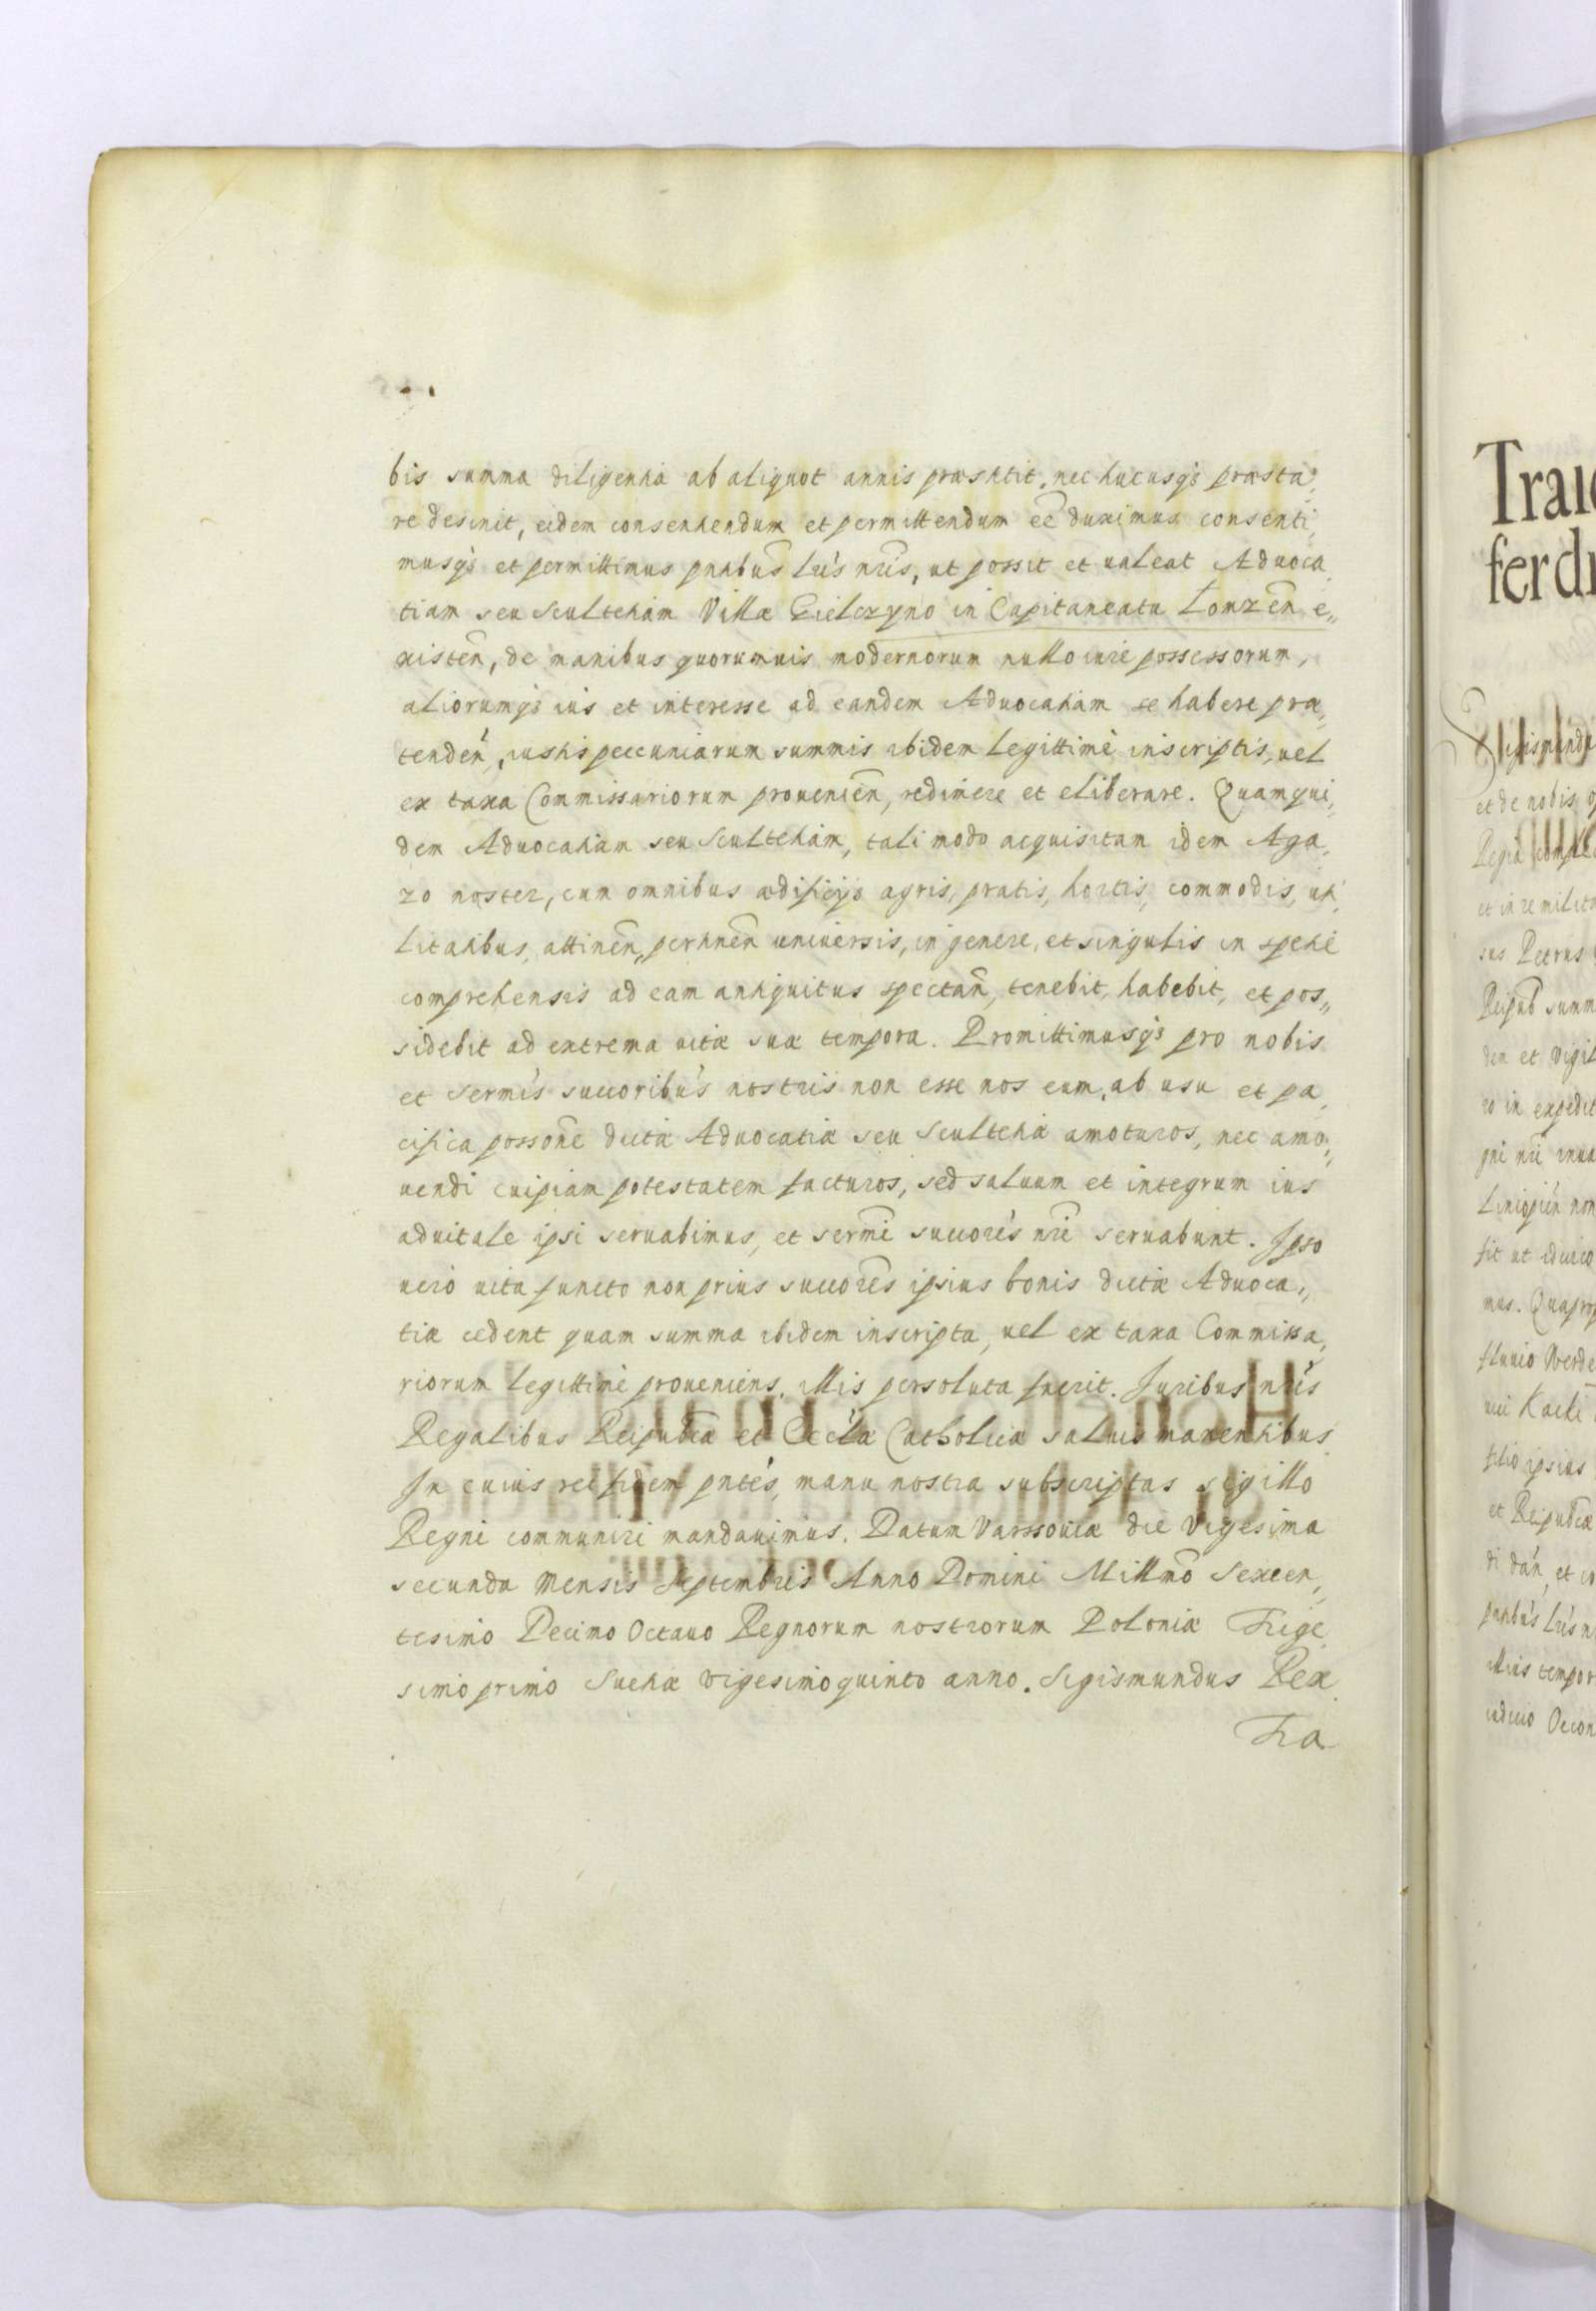 bis summa diligentia ab aliquot annis præstitit, nec hucusq3 præsta,
re desinit, eidem consentiendum et permittendum eẽ duximus consenti,
musq3 et permittimus pntibus lr̃is nr̃is, ut possit et ualeat Aduoca,
tiam seu Scultetiam Villæ Gielczyno in Capitaneatu Łomzeñ e,,
xisteñ, de manibus quorumuis modernorum nullo iure possessorum,
aliorumq3 ius et interesse ad eandem Aduocatiam se habere præ,,
tendeñ, iustis peccuniarum summis ibidem Legittimè inscriptis, uel
ex taxa Commissariorum prouenieñ, redimere et eliberare. Quamqui,,
dem Aduocatiam seu Scultetiam, tali modo acquisitam idem Aga,
zo noster, cum omnibus ædificijs agris, pratis, hortis, commodis, uti,
litatibus, attineñ, pertineñ uniuersis, in genere, et singulis in spetie
comprehensis ad eam antiquitus spectañ, tenebit, habebit, et pos,,
sidebit ad extrema uitæ suæ tempora. Promittimusq3 pro nobis
et Sermis succoribus nostris non esse nos eum, ab usu et pa,
cifica possone dictæ Aduocatiæ seu Scultetiæ amoturos, nec amo,,
uendi cuipiam potestatem facturos, sed saluum et integrum ius
aduitale ipsi seruabimus, et sermi succores nri seruabunt. Ipso
uero uita functo non prius succores ipsius bonis dictæ Aduoca,,
tiæ cedent quam summa ibidem inscripta, uel ex taxa Commissa,
riorum Legittimè proueniens, illis persoluta fuerit. Juribus nris
Regalibus Reipublicæ et Ecclæ Catholicæ saluis manentibus.
In cuius rei fidem pntes, manu nostra subscriptas sigillo
Regni communiri mandauimus. Datum Varssouiæ die Vigesima
secunda Mensis Septembris Anno Domini Millmo Sexcen,,
tesimo Decimo Octauo Regnorum nostrorum Poloniæ Trige
simo primo Suetiæ vigesimoquinto anno. Sigismundus Rex.
Tra
Trad
ferdi
Sigismundu
et de nobis
Regia
et in re milita
sus Petrus
Reipub summ
den et Vigil
ro in expedit
gni nri
non
sit ut
mus. Quaprop
fluuio Werde
uii Kacki
filio ipsius
et Reipublicæ
di dañ, et
pntibus lris n
illius tempor
iudicio Oecon